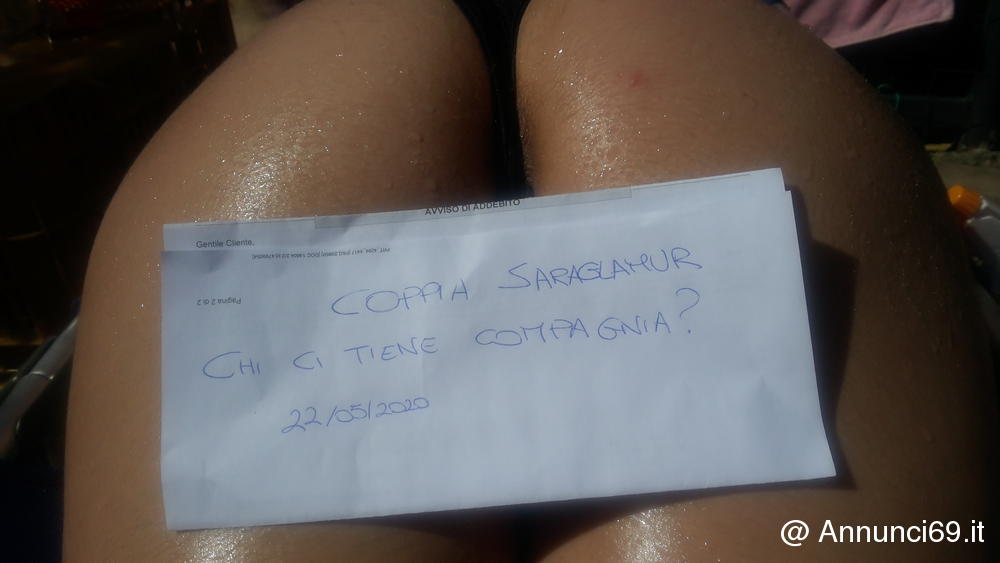 AVVISO DI ADDEBITO
Gentile Cliente,
Pagina 2 di 2
COPPIA SARAGLAMUR
CHI CI TIENE COMPAGNIA?
22/05/2020
@ Annunci69.it